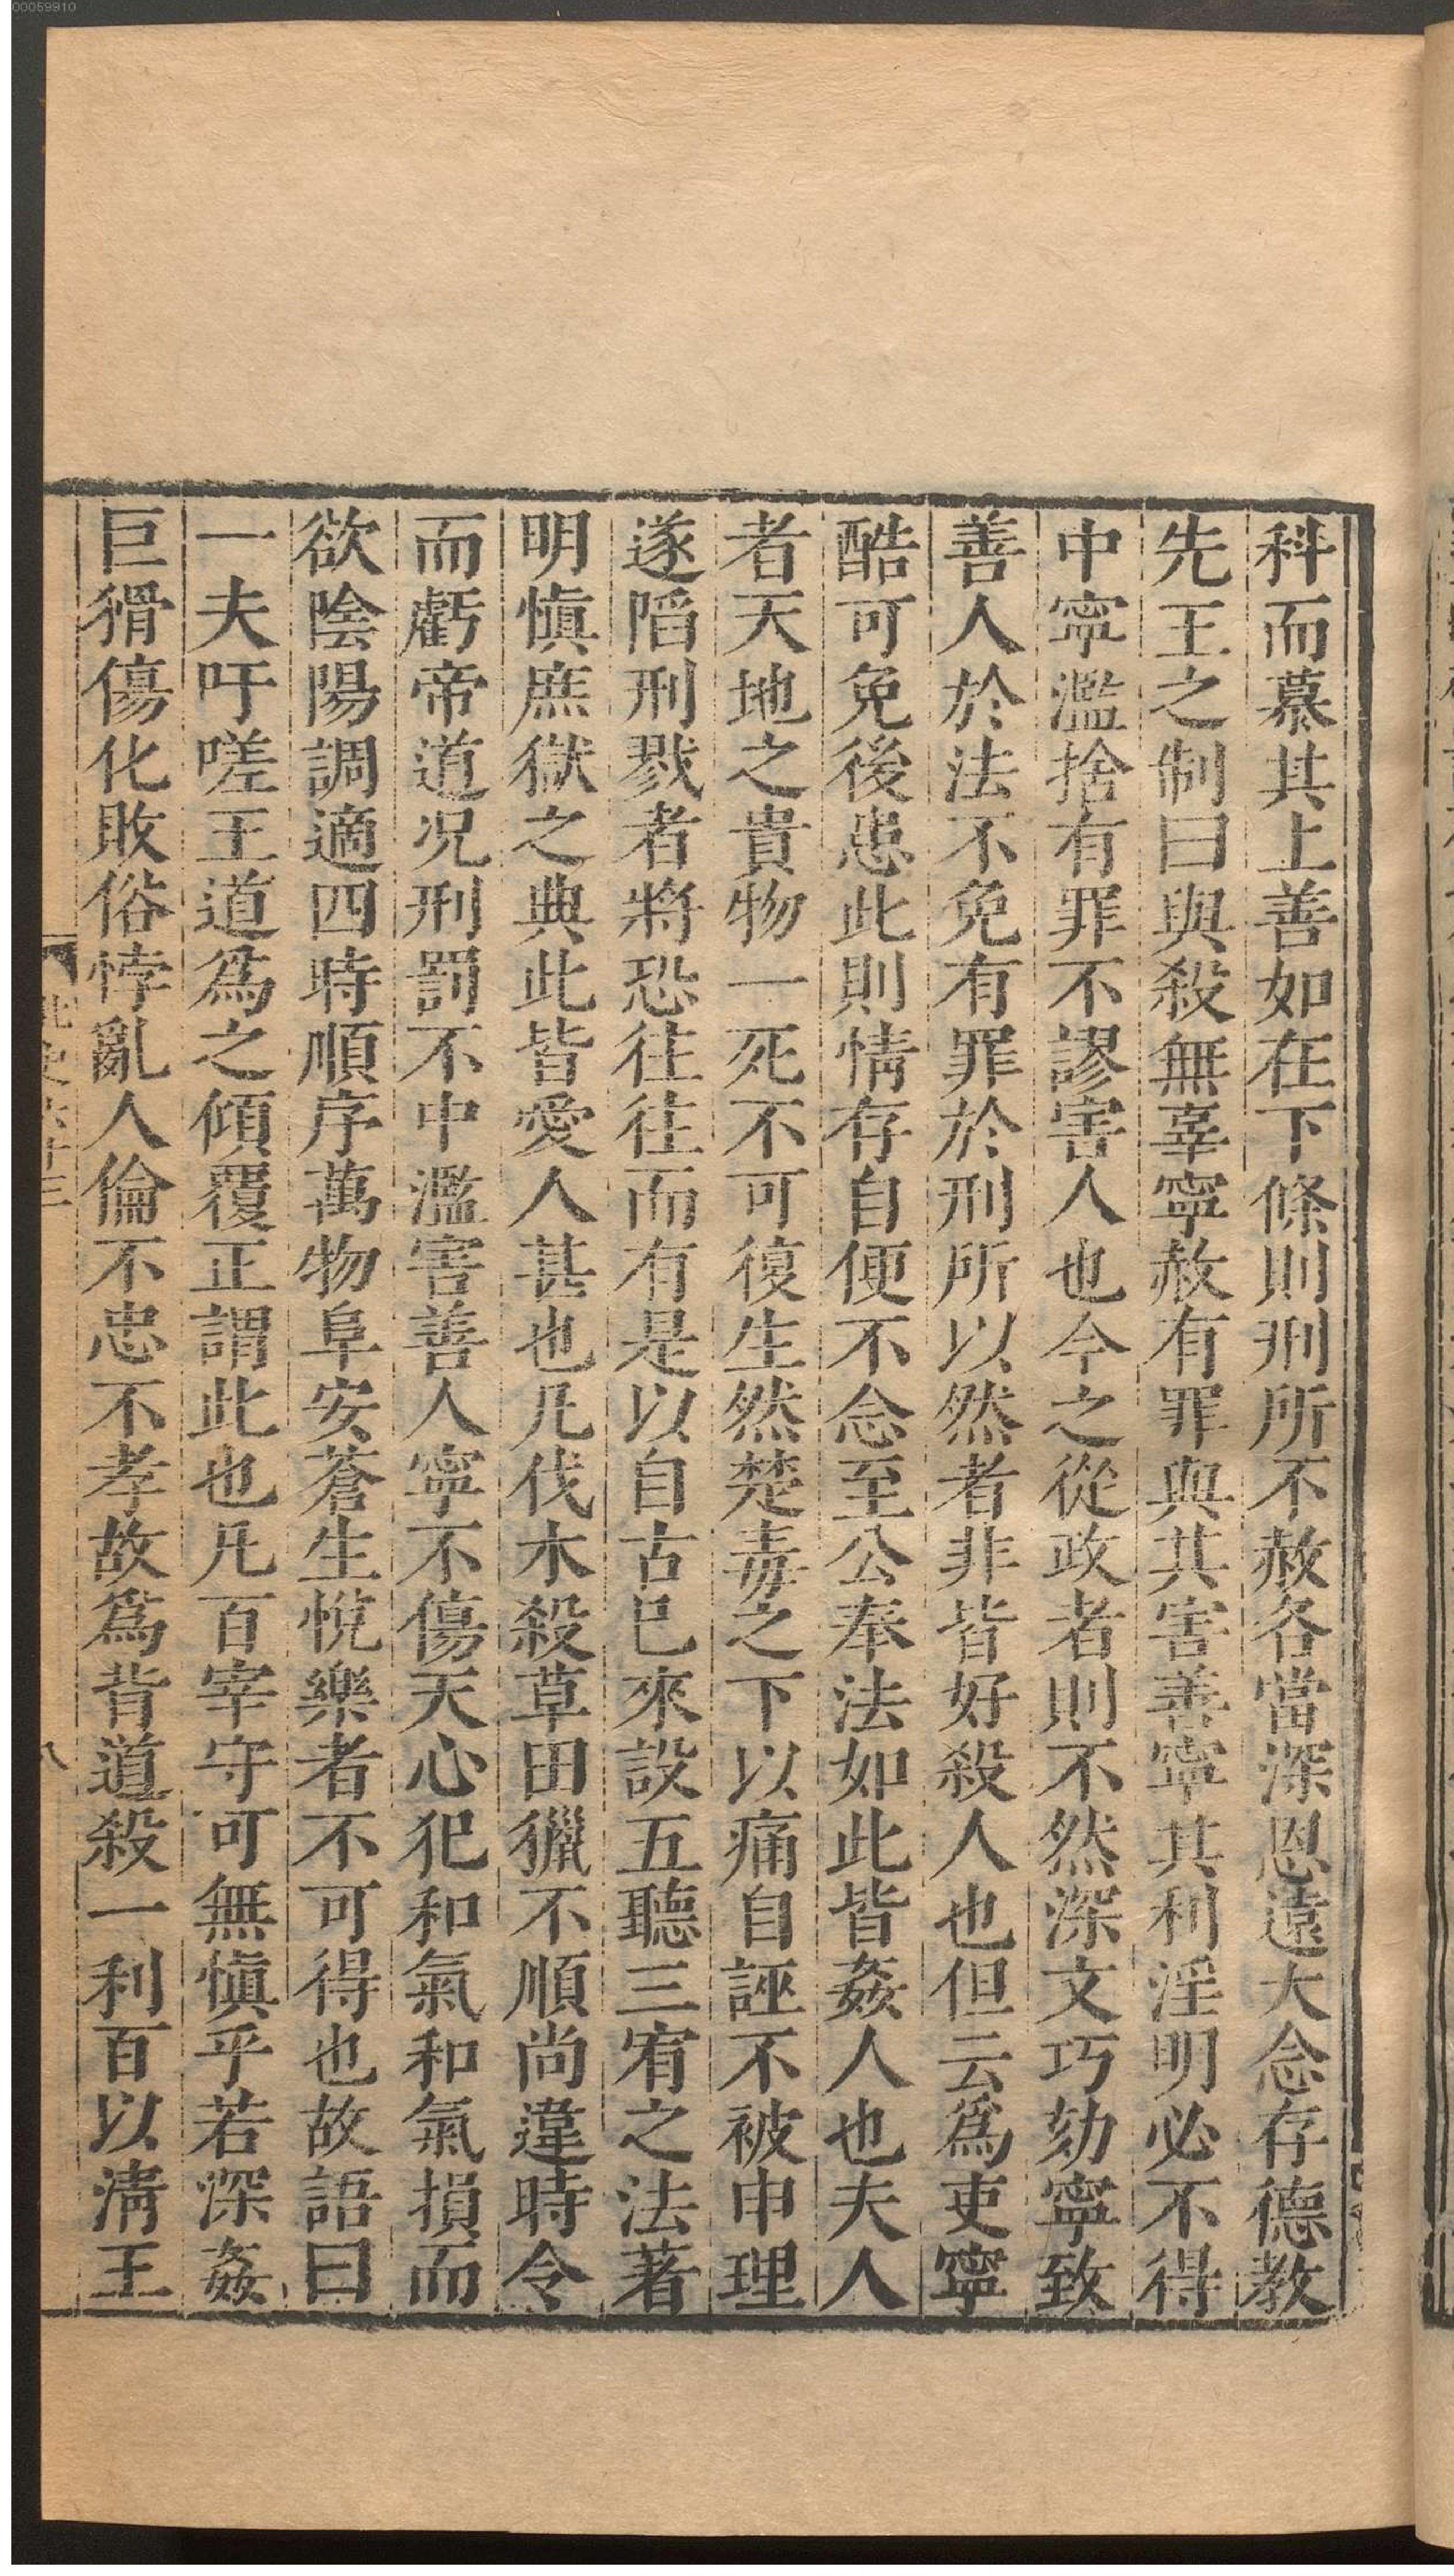 00059910
科而慕其上善如在下條則刑所不赦各當深恩遠大念存德教
先王之制曰與殺無辜寧赦有罪與其害善寧其利淫明必不得
中寧濫捨有罪不謬害人也今之從政者則不然深文巧劾寧致
善人於法不免有罪於刑所以然者非皆好殺人也但云爲吏寧
酷可免後患此則情存自便不念至公奉法如此皆姦人也夫人
者天地之貴物一死不可復生然楚毒之下以痛自誣不被申理
遂陷刑戮者將恐往往而有是以自古已來設五聽三宥之法著
明慎庶獄之典此皆愛人甚也凡伐木殺草田獵不順尚違時令
而虧帝道况刑罰不中濫害善人寧不傷天心犯和氣和氣損而
欲陰陽調適四時順序萬物阜安蒼生悅樂者不可得也故語曰
一夫吁嗟王道爲之傾覆正謂此也凡百宰守可無慎乎若深姦
巨猾傷化敗俗悖亂人倫不忠不孝故爲背道殺一利百以淸王
八